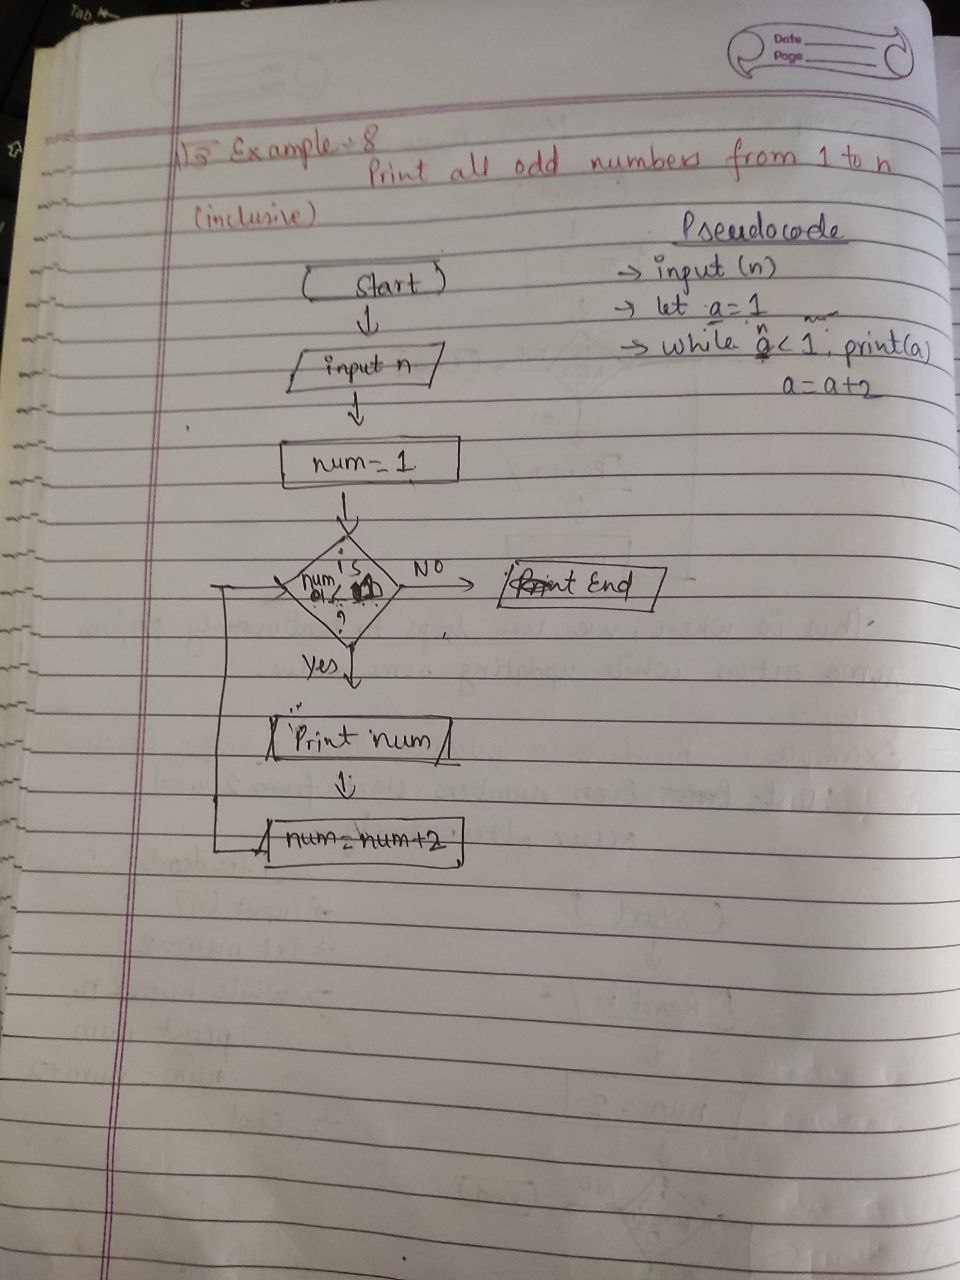 Tab
Date
Page
Example - 8
Print all odd numbers from 1 to n
(inclusive)
Pseudocode
→ input (n)
→ let a = 1
→ while a < 1, print(a)
a = a+2
Start
input n
num = 1
is
num
?
NO
End
Yes
Print num
num = num+2